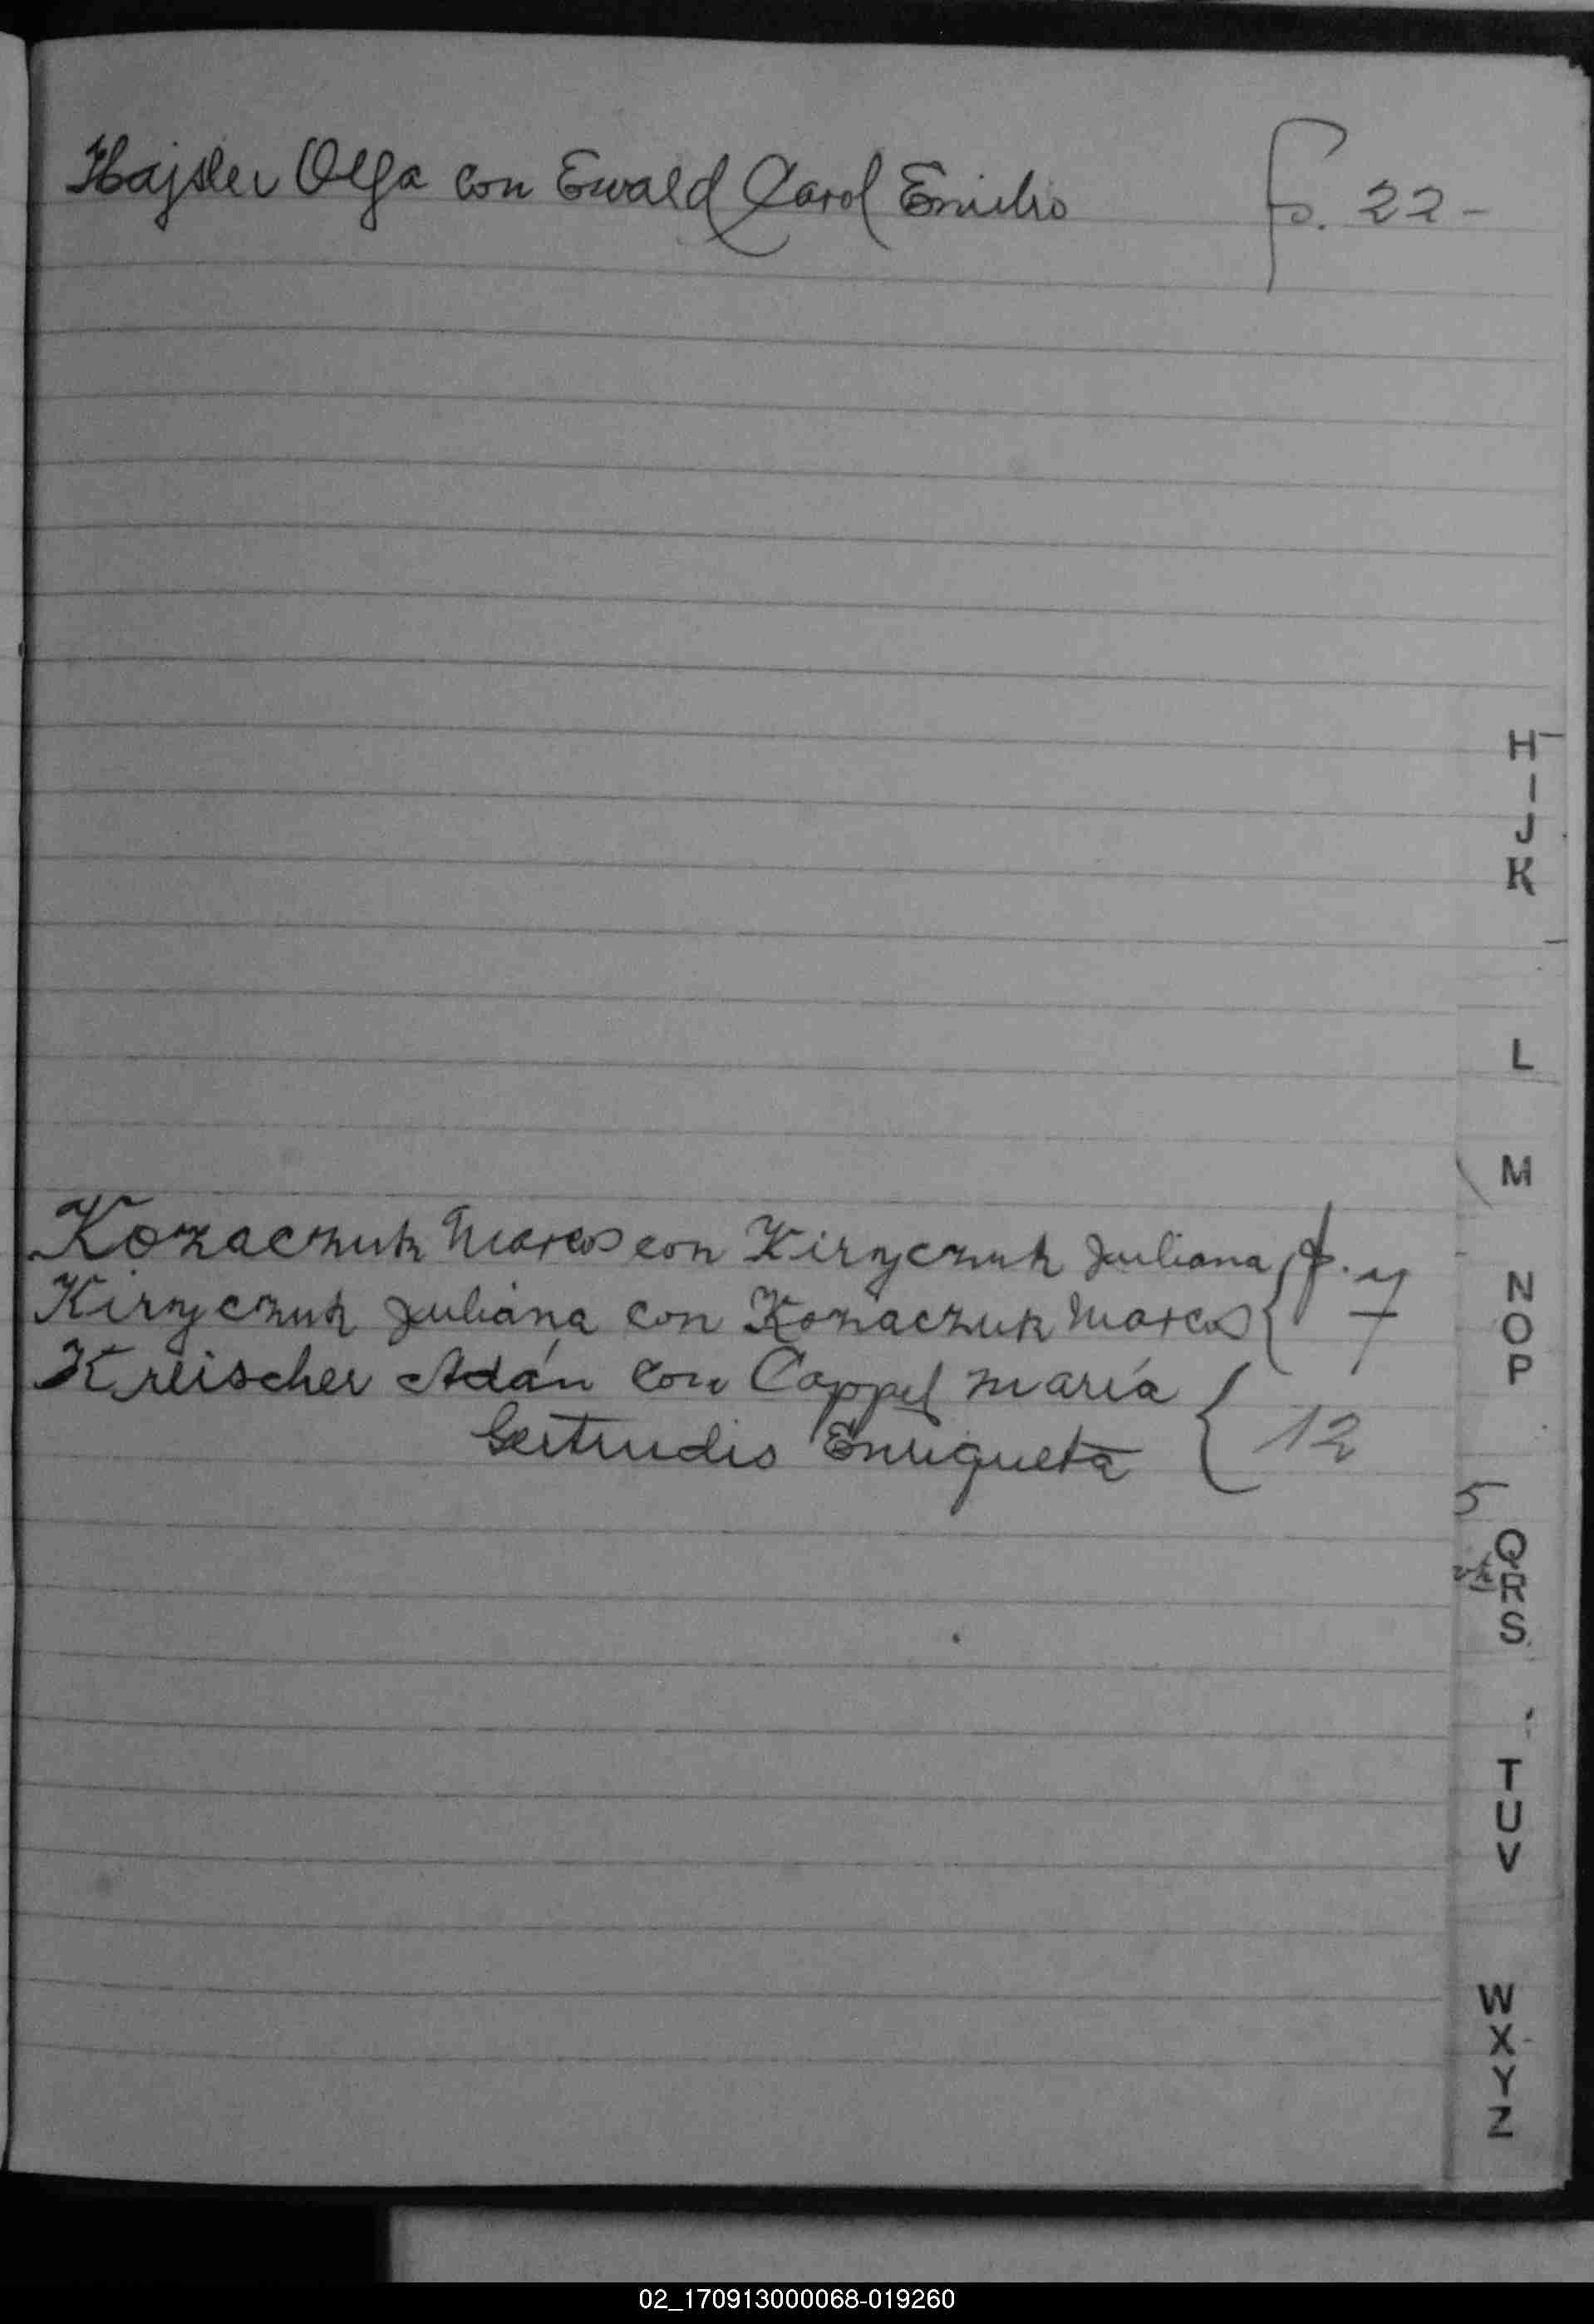 Hajsler Olga con Ewald Carol Emilio fo. 22-
Kozaczuk Marcos con Kiryczuk Juliana f. 7
Kiryczuk Juliana con Kozaczuk Marcos
Kreischer Adán con Cappel María
Gertrudis Enriqueta 12
H
I
J
K
L
M
N
O
P
5
Q
R
S
T
U
V
W
X
Y
Z
02_170913000068-019260